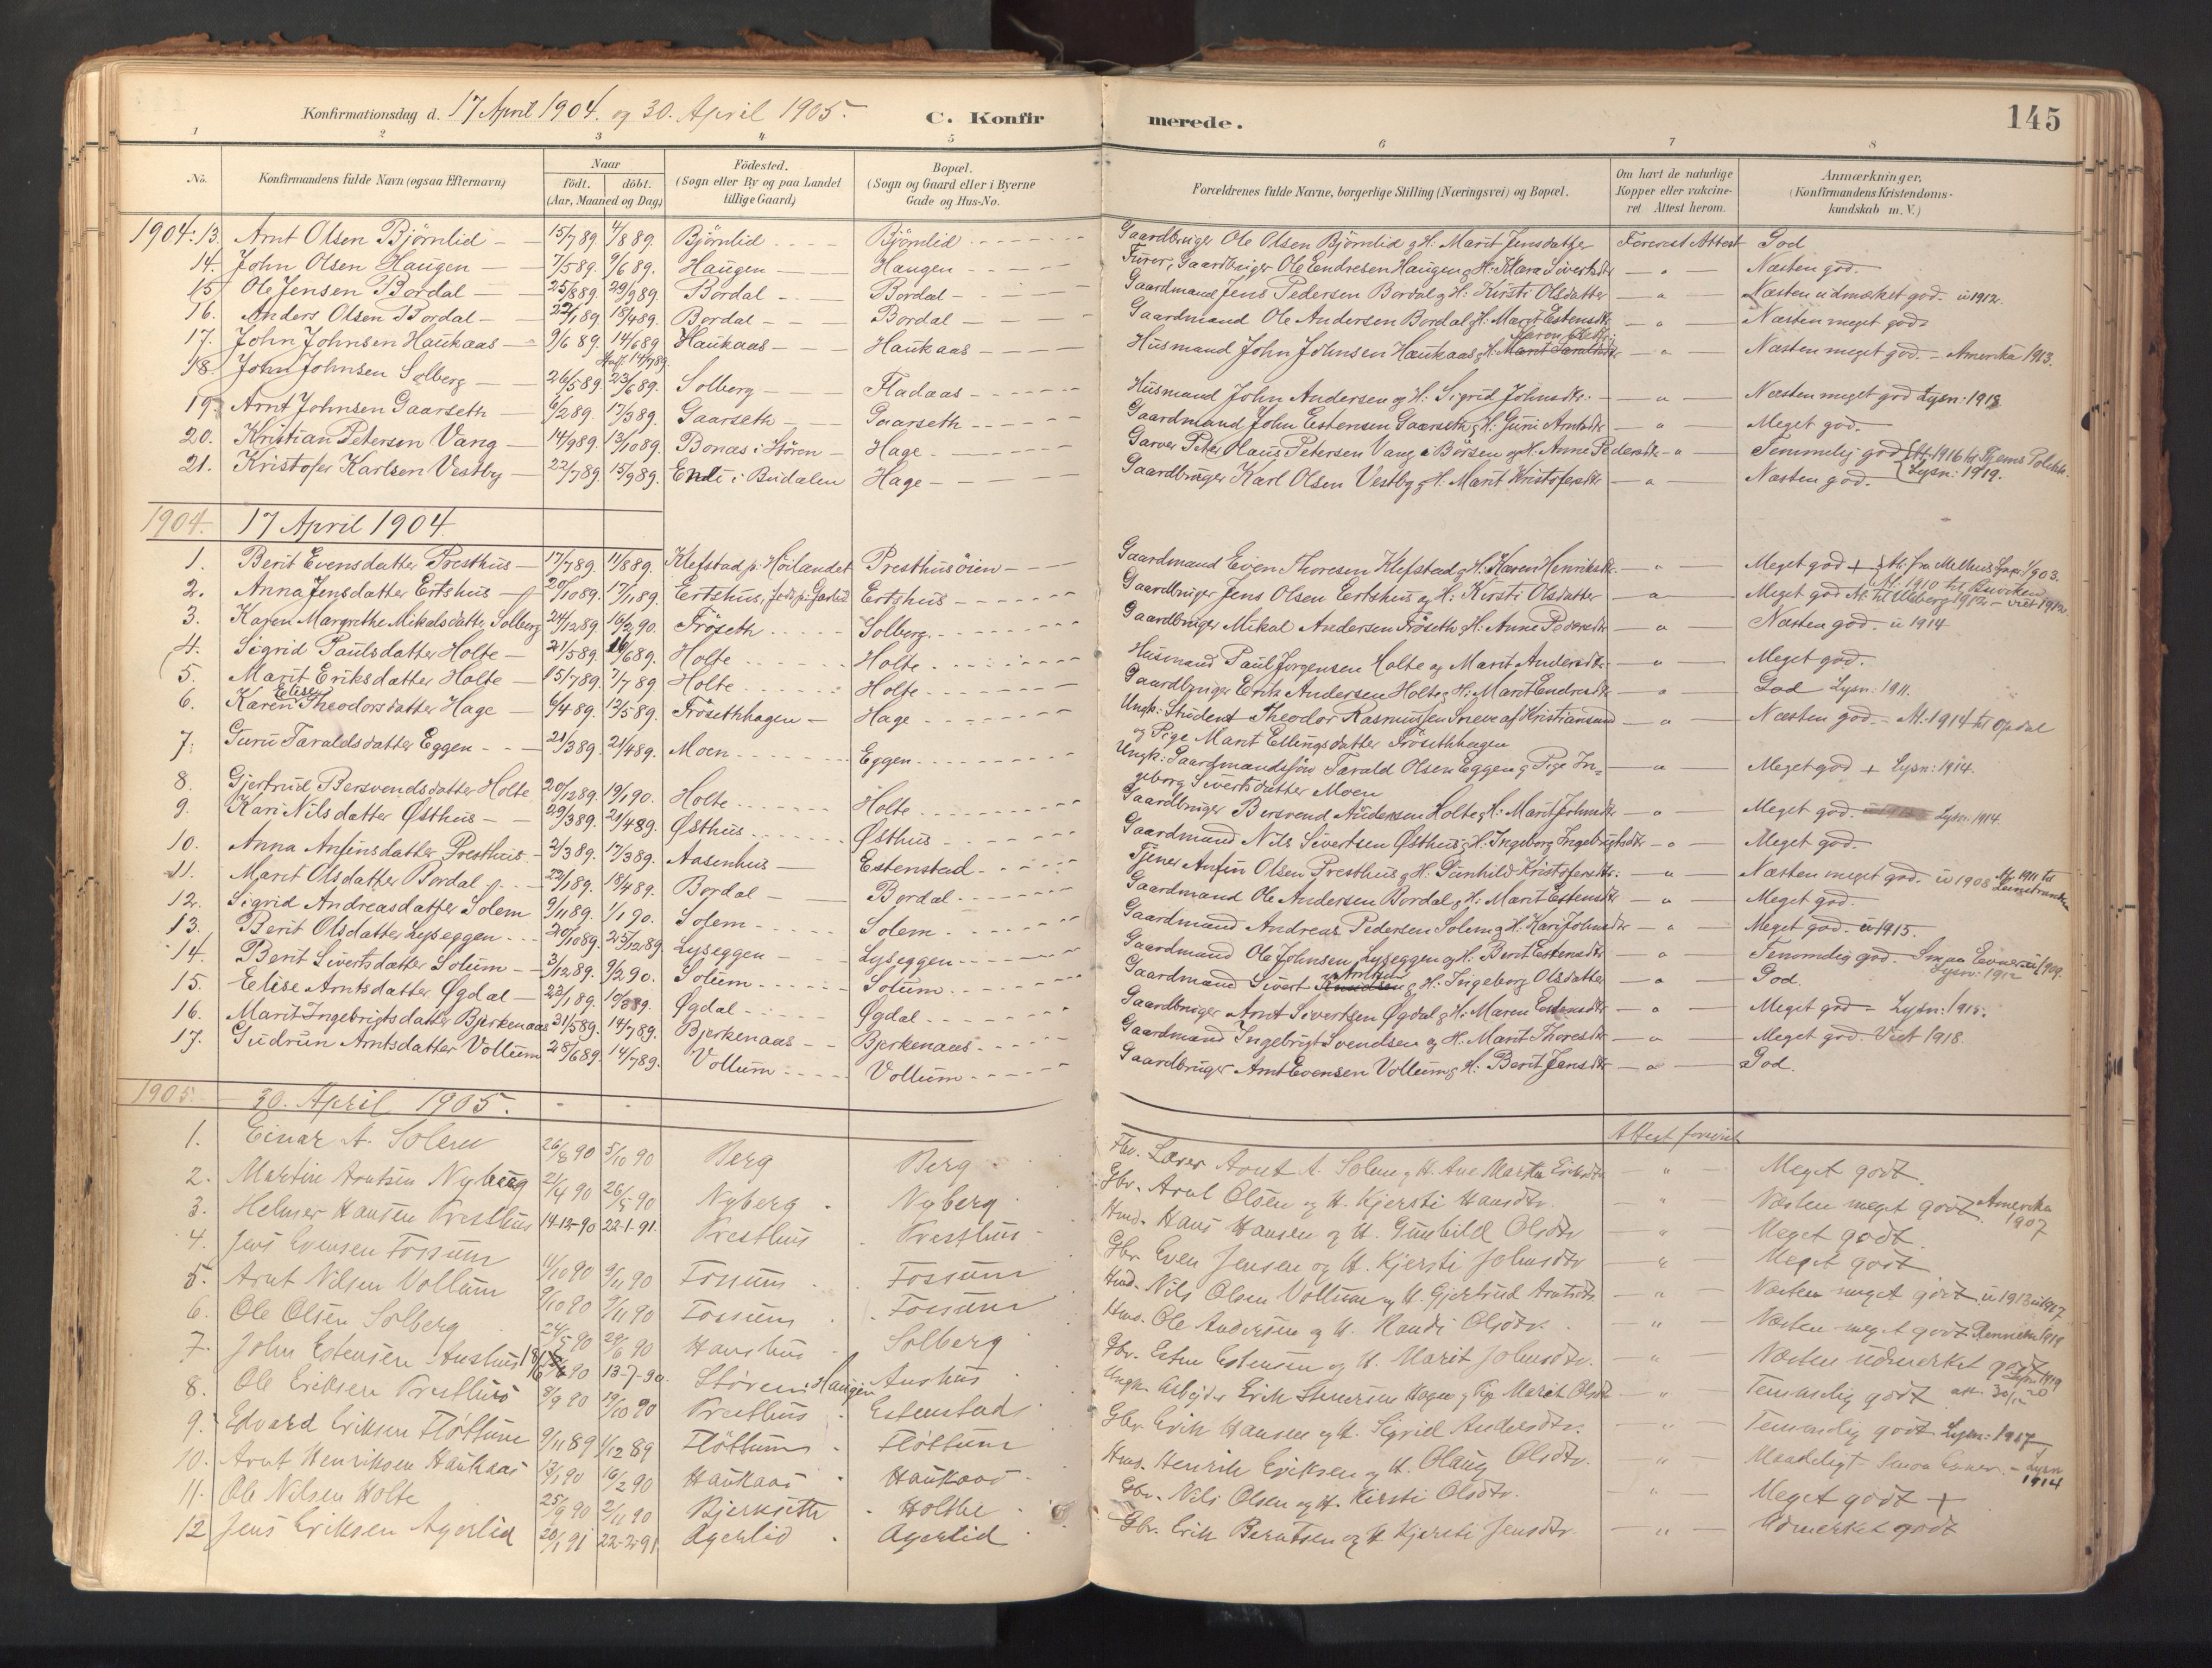 Konfirmationsdag d. 17 April 1904. og 30. April 1905. C. Konfirmerede. 145
1 2 3 4 5 6 7 8
No. Konfirmandens fulde Navn (ogsaa Efternavn) Naar födt. döbt. (Aar, Maaned og Dag) Födested. (Sogn eller By og paa Landet tillige Gaard) Bopæl. (Sogn og Gaard eller i Byerne Gade og Hus-No. Forældrenes fulde Navne, borgerlige Stilling (Næringsvei) og Bopæl. Om havt de naturlige Kopper eller vakcineret Attest herom. Anmærkninger, (Konfirmandens Kristendomskundskab m. V.)
1904: 13. Arnt Olsen Bjørnlid 15/7 89. 4/8 89. Bjørnlid Bjørnlid Gaardbruger Ole Olsen Bjørnlid g H: Marit Jensdatter Forevist Attest God
14. John Olsen Haugen 7/5 89. 9/6 89. Haugen Haugen Gaardbruger Ole Endresen Haugen g H: Mara Sivertsdtr Næsten god.
15 Ole Jensen Bordal 25/8 89. 29/9 89. Bordal Bordal Gaardmand Jens Pedersen Bordal g H: Kirsti Olsdatter Næsten udmærket god. u 1912.
16. Anders Olsen Bordal 22/1 89. 18/4 89. Bordal Bordal Gaardmand Ole Andersen Bordal g H: Marit Estensdtr Næsten meget god
17. John Johnsen Haukaas 9/6 89. 14/6 89. Haukaas Haukaas Husmand John Johnsen Haukaas g H: Næsten meget god. - Amerika 1913.
18. John Johnsen Solberg 26/5 89. 23/6 89. Solberg Fladaas Husmand John Andersen og H: Sigrid Johnsdtr: Næsten meget god Lysn: 1918
19. Arnt Johnsen Gaarseth 6/2 89. 17/3 89. Gaarseth Gaarseth Gaardmand John Estensen Gaarseth g H: Guru Arntsdtr Meget god.
20. Kristian Petersen Vang 14/9 89. 13/10 89. Bonæs i Støren Hage Garver Peter Olaus Petersen Vang i Børsen og H: Anne Pedersdtr Temmelig god
21. Kristofer Karlsen Vestby 22/7 89. 15/9 89. Endi i Budalen Hage Gaardbruger Karl Olsen Vestby g H: Marit Kristofersdtr Næsten god. Lysn: 1919.
1904. 17 April 1904
1. Berit Evensdatter Presthus 17/7 89. 11/8 89. Klefstad p: Høilandet Presthusøien Gaardmand Even Thoresen Klefstad g H: Karen Henriksdtr Meget god +
2. Anna Jensdatter Ertshus 20/10 89. 17/11 89. Ertshus, Ertshus Gaardbruger Jens Olsen Ertshus og H: Kirsti Olsdatter Meget god
3. Karen Margrethe Mikalsdatter Solberg 24/12 89. 16/2 90. Frøseth Solberg. Gaardbruger Mikal Andersen Frøseth g H: Anne Pedersdtr Næsten god. u 1914
4. Sigrid Paulsdatter Holte 21/5 89. 16/6 89. Holte Holte Husmand Paul Jørgensen Holte og Marit Andersdtr Meget god.
5. Marit Eriksdatter Holte 15/7 89. 7/7 89 Holte Holte Gaardbruger Erik Andersen Holte g H: Marit Endresdtr God Lysn: 1911.
6. Karen Elise Theodorsdatter Hage 6/4 89. 12/5 89. Frøsethhagen Hage Ungk: Student Theodor Rasmussen Sneve af Kristiansund Næsten god. - At: 1914 til Opdal
og Pige Marit Ellingsdatter Frøsethhagen
7. Guru Taraldsdatter Eggen 21/3 89. 21/4 89. Moen Eggen Ungk: Gaardmandssøn Tarald Olsen Eggen g Pige In- Meget god + Lysn: 1914.
geborg Sivertsdatter Moen
8. Gjertrud Bersvendsdatter Holte 20/12 89. 19/1 90. Holte Holte Gaardbruger Bersvend Andersen Holte g H: Marit Johnsdtr Meget god. Lysn: 1914
9. Kari Nilsdatter Østhus 29/3 89. 21/4 89. Østhus Østhus Gaardmand Nils Sivertsen Østhus g H: Ingeborg Ingebrigtsdtr Meget god.
10. Anna Anfinsdatter Presthus 2/3 89. 17/3 89. Aasenhus Estenstad Tjener Anfin Olsen Presthus g H: Gunhild Kristofersdtr: Næsten meget god. u 1908
11. Marit Olsdatter Bordal 22/1 89. 18/4 89. Bordal Bordal Gaardmand Ole Andersen Bordal g H: Marit Estensdtr Meget god.
12. Sigrid Andreasdatter Solem 9/11 89. 1/1 90. Solem Solem Gaardmand Andreas Pedersen Solem g H: Kari Johnsdtr Meget god. u 1915.
13. Berit Olsdatter Lyseggen 20/10 89. 25/12 89. Lyseggen Lyseggen Gaardmand Ole Johnsen Lyseggen og H: Berit Estensdtr Temmelig god. Lysn: 1912
14. Berit Sivertsdatter Solum 3/12 89. 9/2 90. Solum Solum Gaardmand Sivert g H: Ingeborg Olsdatter God.
15. Elise Arntsdatter Øgdal 22/1 89. 10/3 89. Øgdal Øgdal Gaardbruger Arnt Sivertsen Øgdal g H: Maren Estensdtr Meget god - Lysn:
16. Marit Ingebrigtsdatter Bjerkenaas 31/5 89. 14/7 89. Bjerkenaas Bjerkenaas Gaardmand Ingebrigt Svendsen og H: Marit Thoresdtr Meget god. Viet 1918.
17. Gudrun Arntsdatter Vollum 28/6 89. 14/7 89. Vollum Vollum Gaardbruger Arnt Evensen Vollum g H: Berit Jensdtr God.
1905. 30. April 1905. Attest forevist
1. Einar A. Solem 26/8 90 5/10 90 Berg Berg Fhv. Lærer Arnt A. Solem g H. Ane Marta Eriksdtr Meget godt.
2. Martin Arntsen Nyberg 21/4 90 26/5 90 Nyberg Nyberg Gbr. Arnt Olsen og H. Kjersti Hansdtr. Næsten meget godt Amerika 1907
3. Helmer Hansen Presthus 14-12-90 22-1-91. Presthus Presthus Hmd. Hans Hansen og H. Gunhild Olsdtr Meget godt.
4. Jens Evensen Fossum 11/10 90 9/11 90 Fossum Fossum Gbr. Even Jensen og H. Kjersti Johnsdtr Meget godt
5. Arnt Nilsen Vollum 9/10 90 9/11 90 Fossum Fossum Hmd. Nils Olsen Vollum og H. Gjertrud Arntsdtr Næsten meget godt
6. Ole Olsen Solberg 24/5 90 29/6 90 Solberg Hmd. Ole Andersen og H. Randi Olsdtr. Næsten meget godt
7. John Estensen Aushus 13-7-90 Støren: Haugen Aushus Gbr. Esten Estensen og H. Marit Johnsdtr. Næsten udmerket godt
8. Ole Eriksen Presthus 9/9 90 19/10 90 Presthus Estenstad Ungk. Arbejder Erik g Pige Marit Olsdtr Temmelig godt
9. Edvard Eriksen Fløttum 9/11 89 1/12 89 Fløttum Fløttum Gbr. Erik Hansen og H. Sigrid Andersdtr. Temmelig godt Lysn: 1917
10. Arnt Henriksen Haukaas 13/1 90 16/2 90 Haukaas Haukaas Hmd. Henrik Eriksen og H. Olaug Olsdtr. Maadeligt - Lysn 1914
11. Ole Nilsen Holte 25/9 90 2/11 90 Bjerkseth Holthe Gbr. Nils Olsen og H. Kirsti Olsdtr. Meget godt +
12 Jens Eriksen Agerlid 20/1 91 22-2-91 Agerlid Agerlid Gbr. Erik Berntsen og H. Kjersti Jensdtr. Udmerket godt